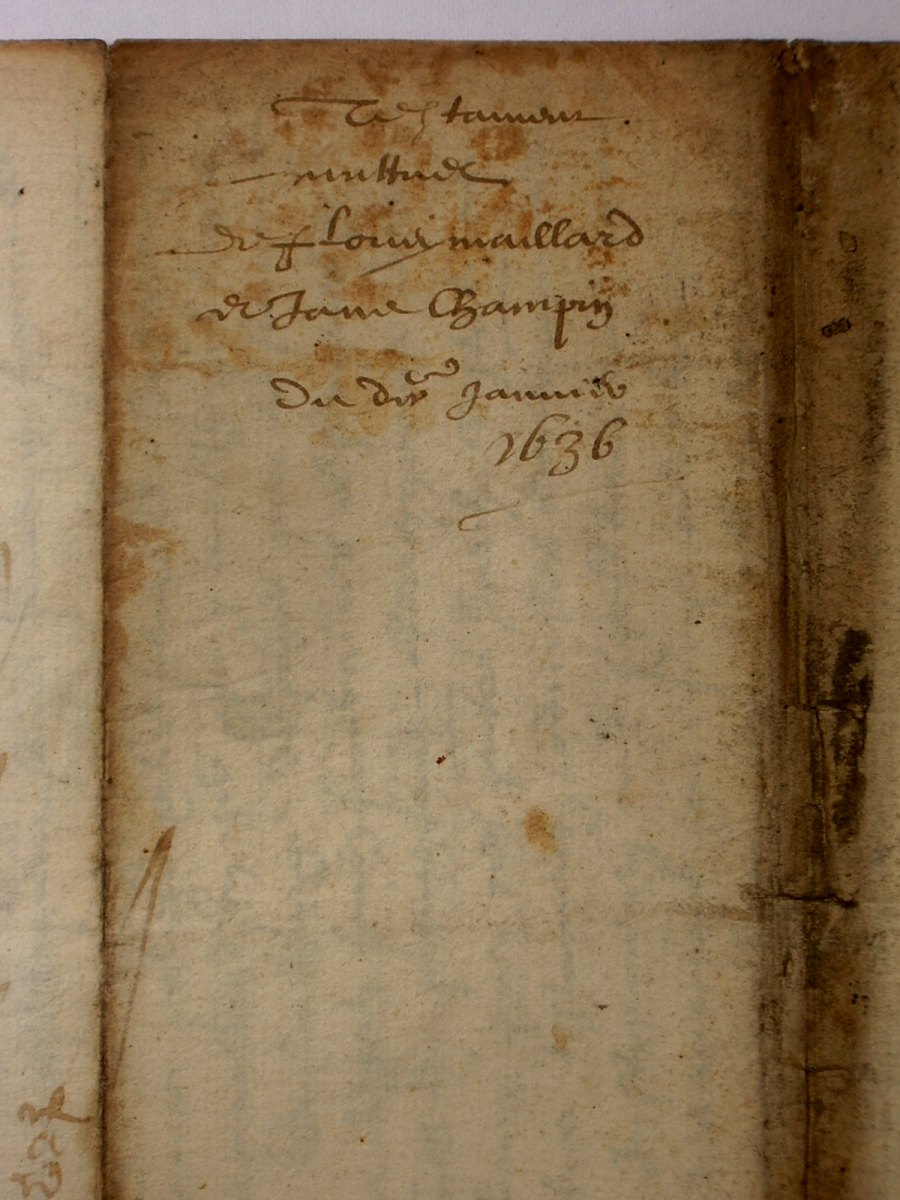 Testament
muttuel
de Louis maillard
et Jane Champin
du dixe Janvier
1636